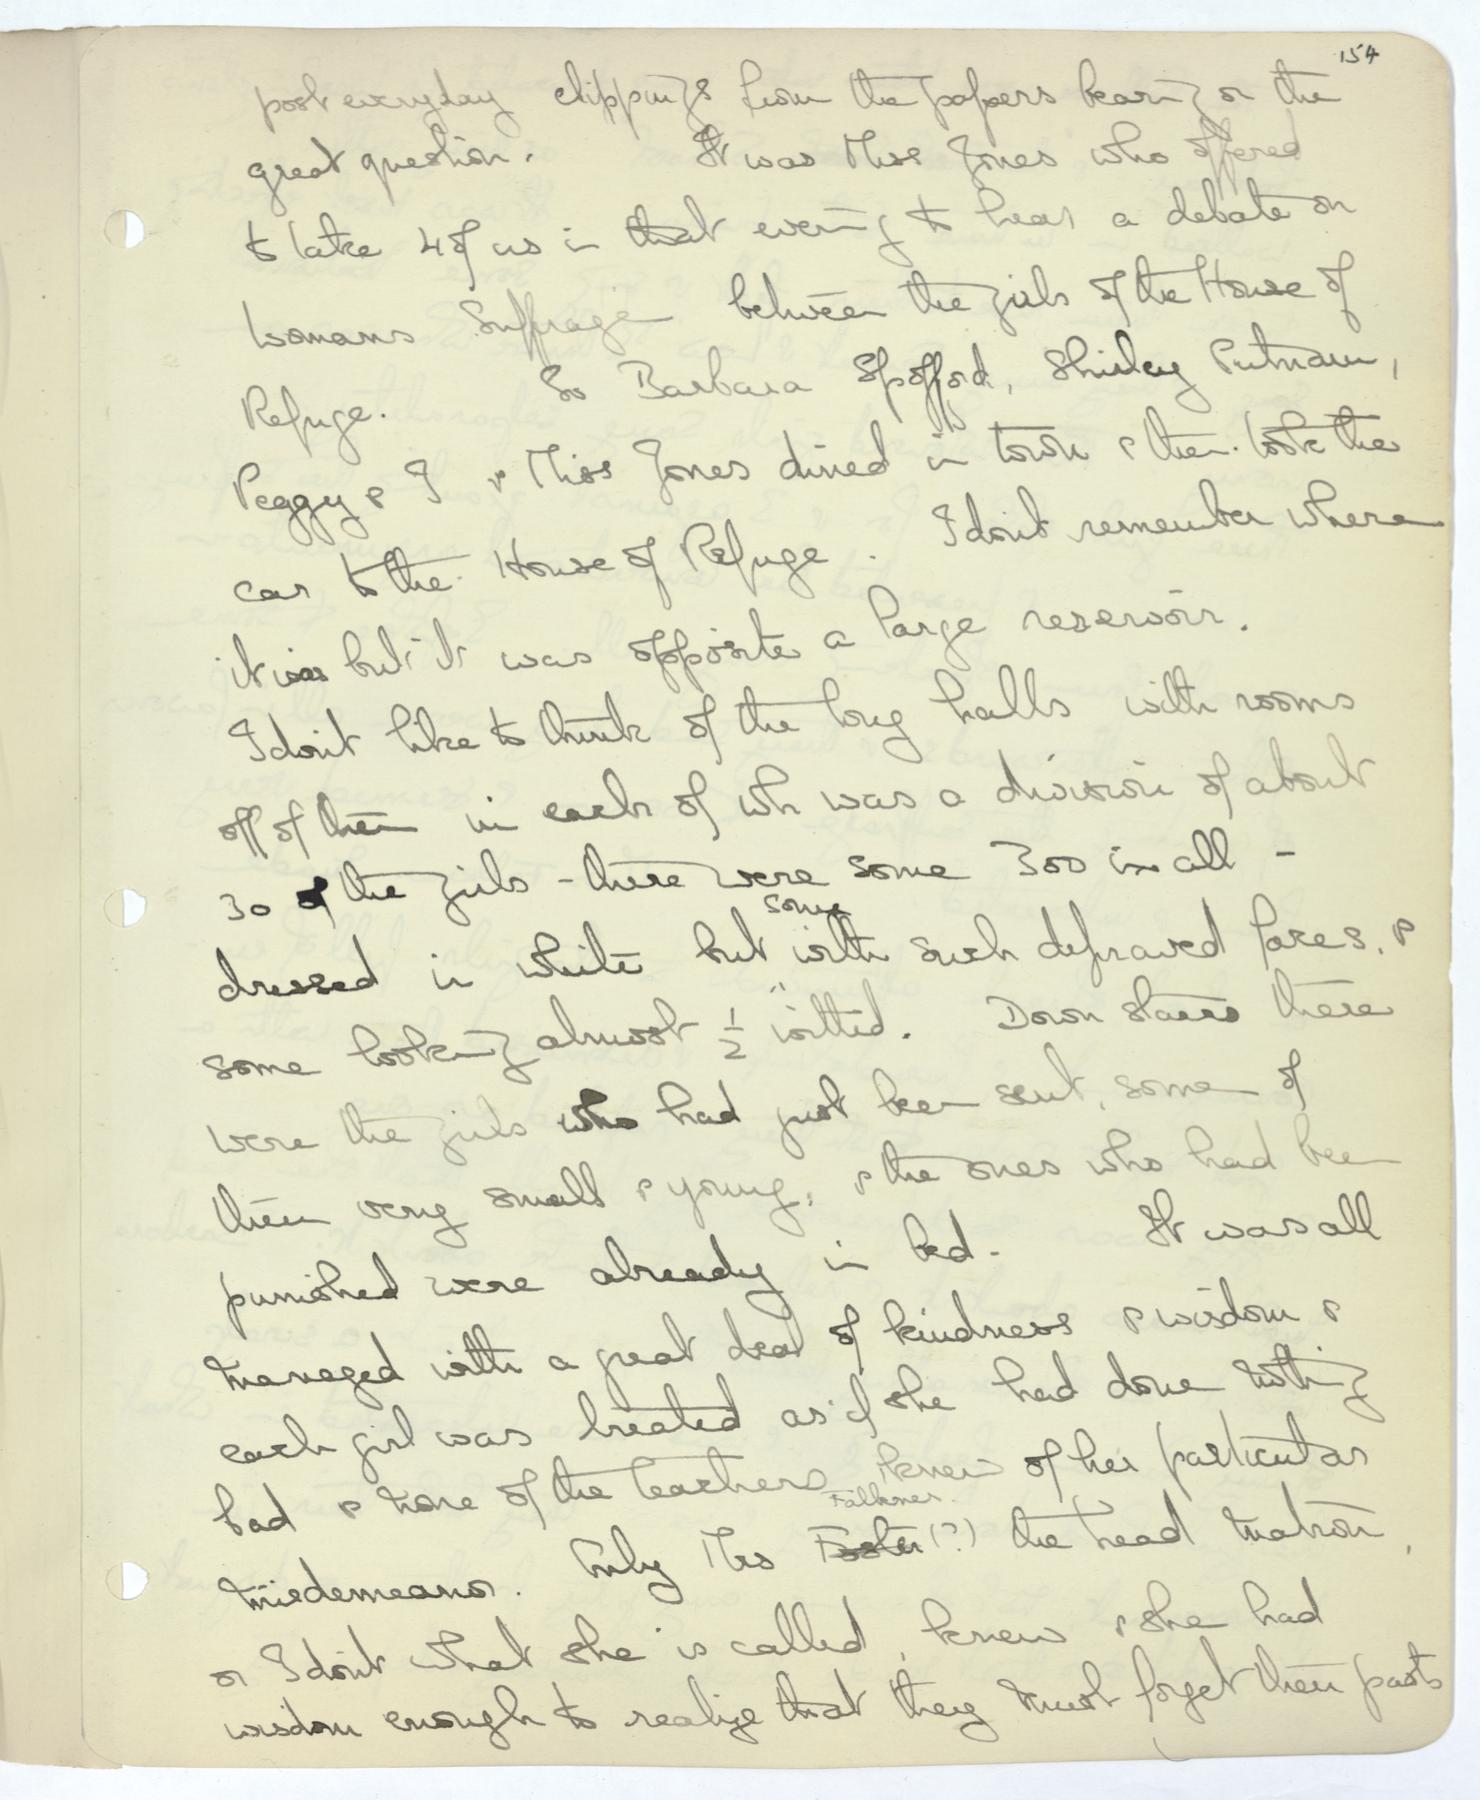 154
post everyday clippings from the papers bearing on the
great question. It was Miss Jones who offered
to take 4 of us in that evening to hear a debate on
Womans Suffrage between the girls of the House of
Refuge. So Barbara Spofford, Shirley Putnam,
Peggy & I & Miss Jones dined in town & then took the
car to the House of Refuge. I don't remember where
it was but it was opposite a large reservoir.
I don't like to think of the long halls with rooms
off of them in each of wh was a division of about
30 of the girls - there were some 300 in all -
some
dressed in white but with such depraved faces, &
some looking almost ½ witted. Down stairs there
were the girls who had just been sent, some of
them very small & young, & the ones who had been
punished were already in bed. It was all
managed with a great deal of kindness & wisdom &
each girl was treated as if she had done nothing
bad & none of the teachers knew of her particular
Falkner.
misdemeanor. Only Mrs Foster (?) the head matron,
or I don't what she is called, knew & she had
wisdom enough to realize that they must forget their pasts